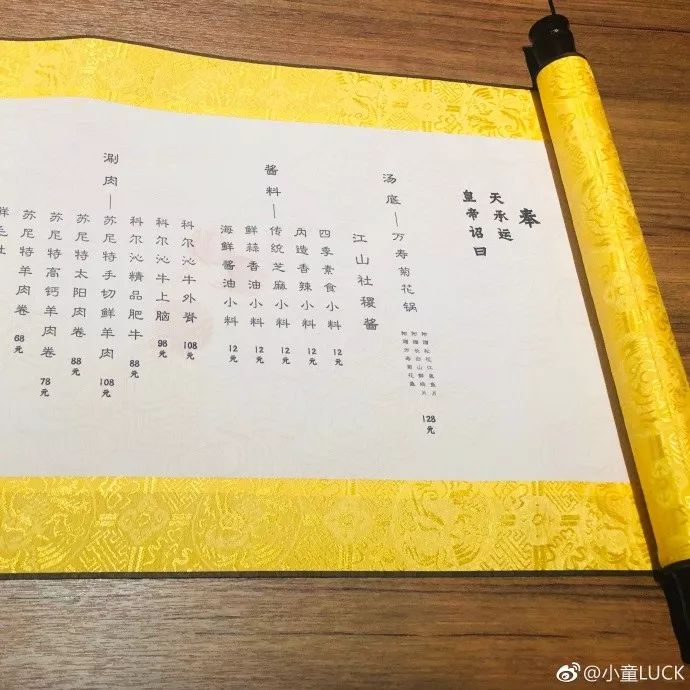 奉
天承运
皇帝诏曰
汤底—万寿菊花锅
128元
江山社稷酱
酱料—传统芝麻小料
12元
四季素食小料
12元
内造香辣小料
12元
鲜蒜香油小料
12元
海鲜酱油小料
12元
科尔沁牛外脊
108元
科尔沁牛上脑
98元
科尔沁精品肥牛
88元
涮肉—苏尼特手切鲜羊肉
108元
苏尼特太阳肉卷
88元
苏尼特高钙羊肉卷
78元
苏尼特羊肉卷
68元
@小童LUCK